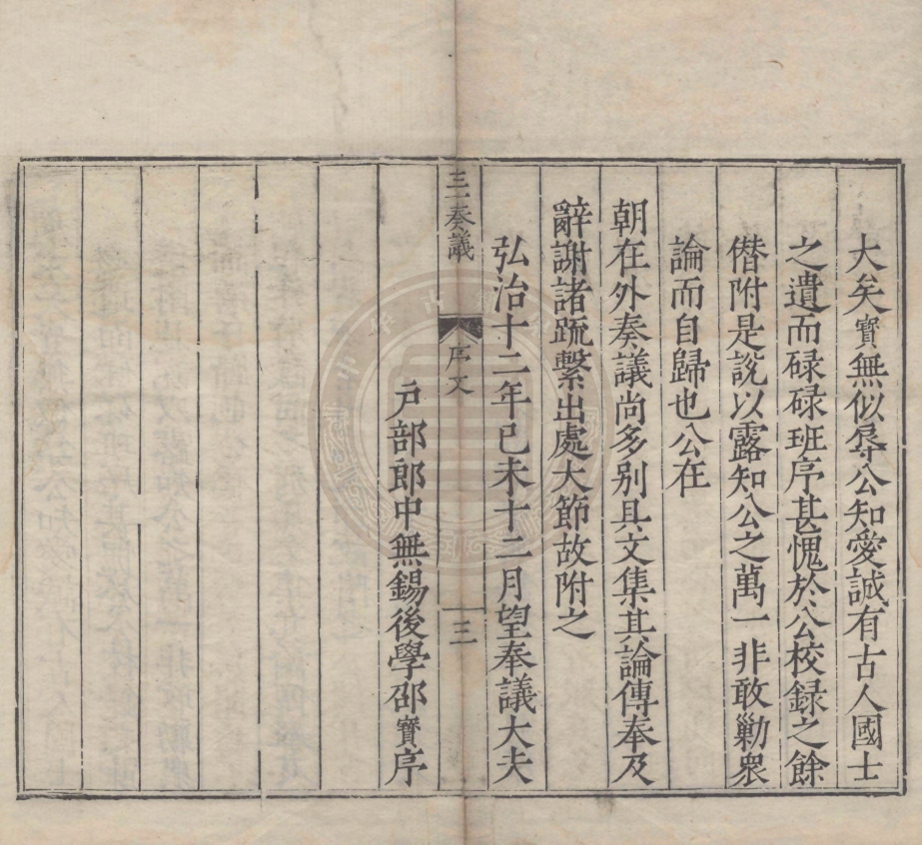 大矣寳無似辱公知愛誠有古人國士
之遺而碌碌班序甚愧於公校録之餘
僣附是説以露知公之萬一非敢勦衆
論而自歸也公在
朝在外奏議尚多别具文集其論傳奉及
辭謝諸疏繫出處大節故附之
弘治十二年已未十二月望奉議大夫
戸部郎中無錫後學邵寳序
奏議
序文
三